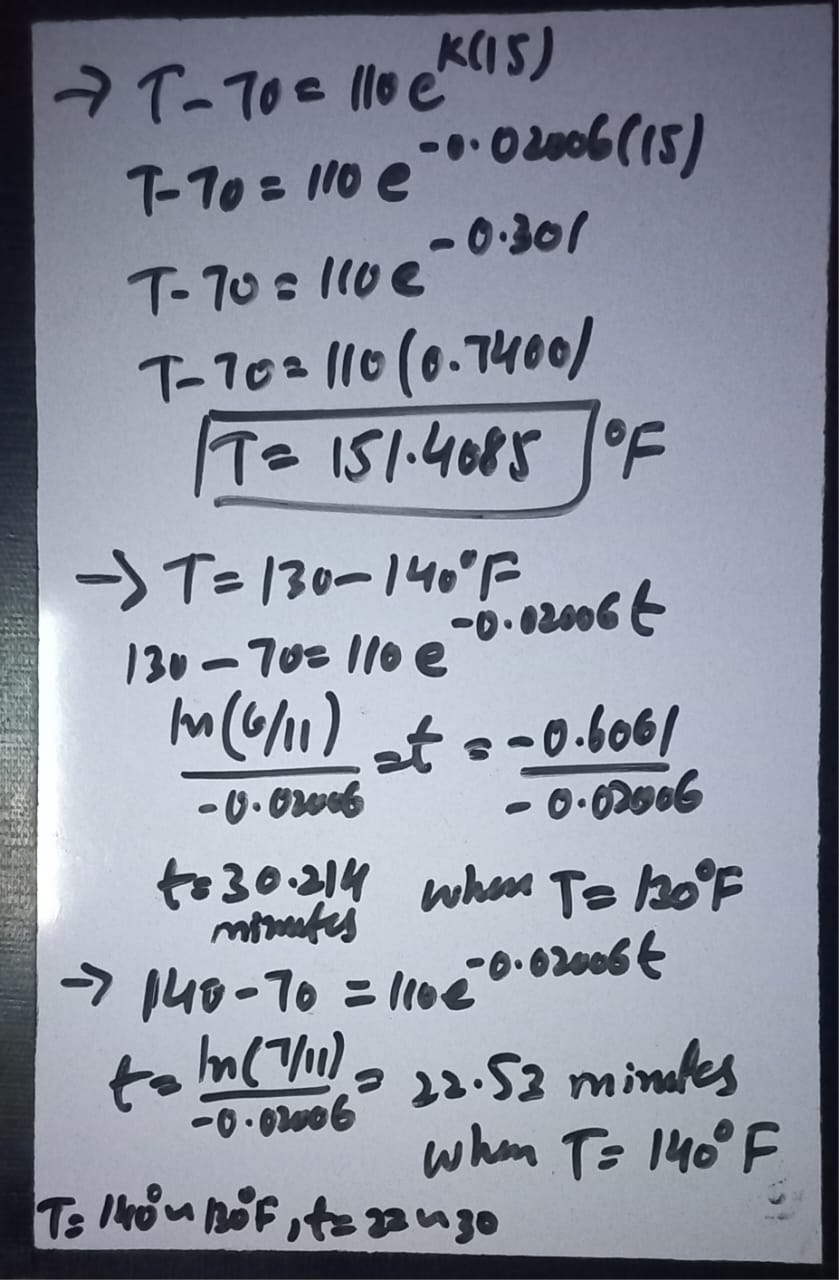 → T-70 = 110 e^K(15)
T-70 = 110 e^-0.02006(15)
T-70 = 110 e^-0.301
T-70 = 110 (0.7400)
T = 151.4085 °F
→ T = 130-140°F
130-70 = 110 e^-0.02006t
ln(6/11)/-0.02006 = t = -0.6061/-0.02006
t = 30.214 minutes when T = 130°F
→ 140-70 = 110e^-0.02006t
t = ln(7/11)/-0.02006 = 22.53 minutes
when T = 140°F
T = 140° 130°F, t = 22 30